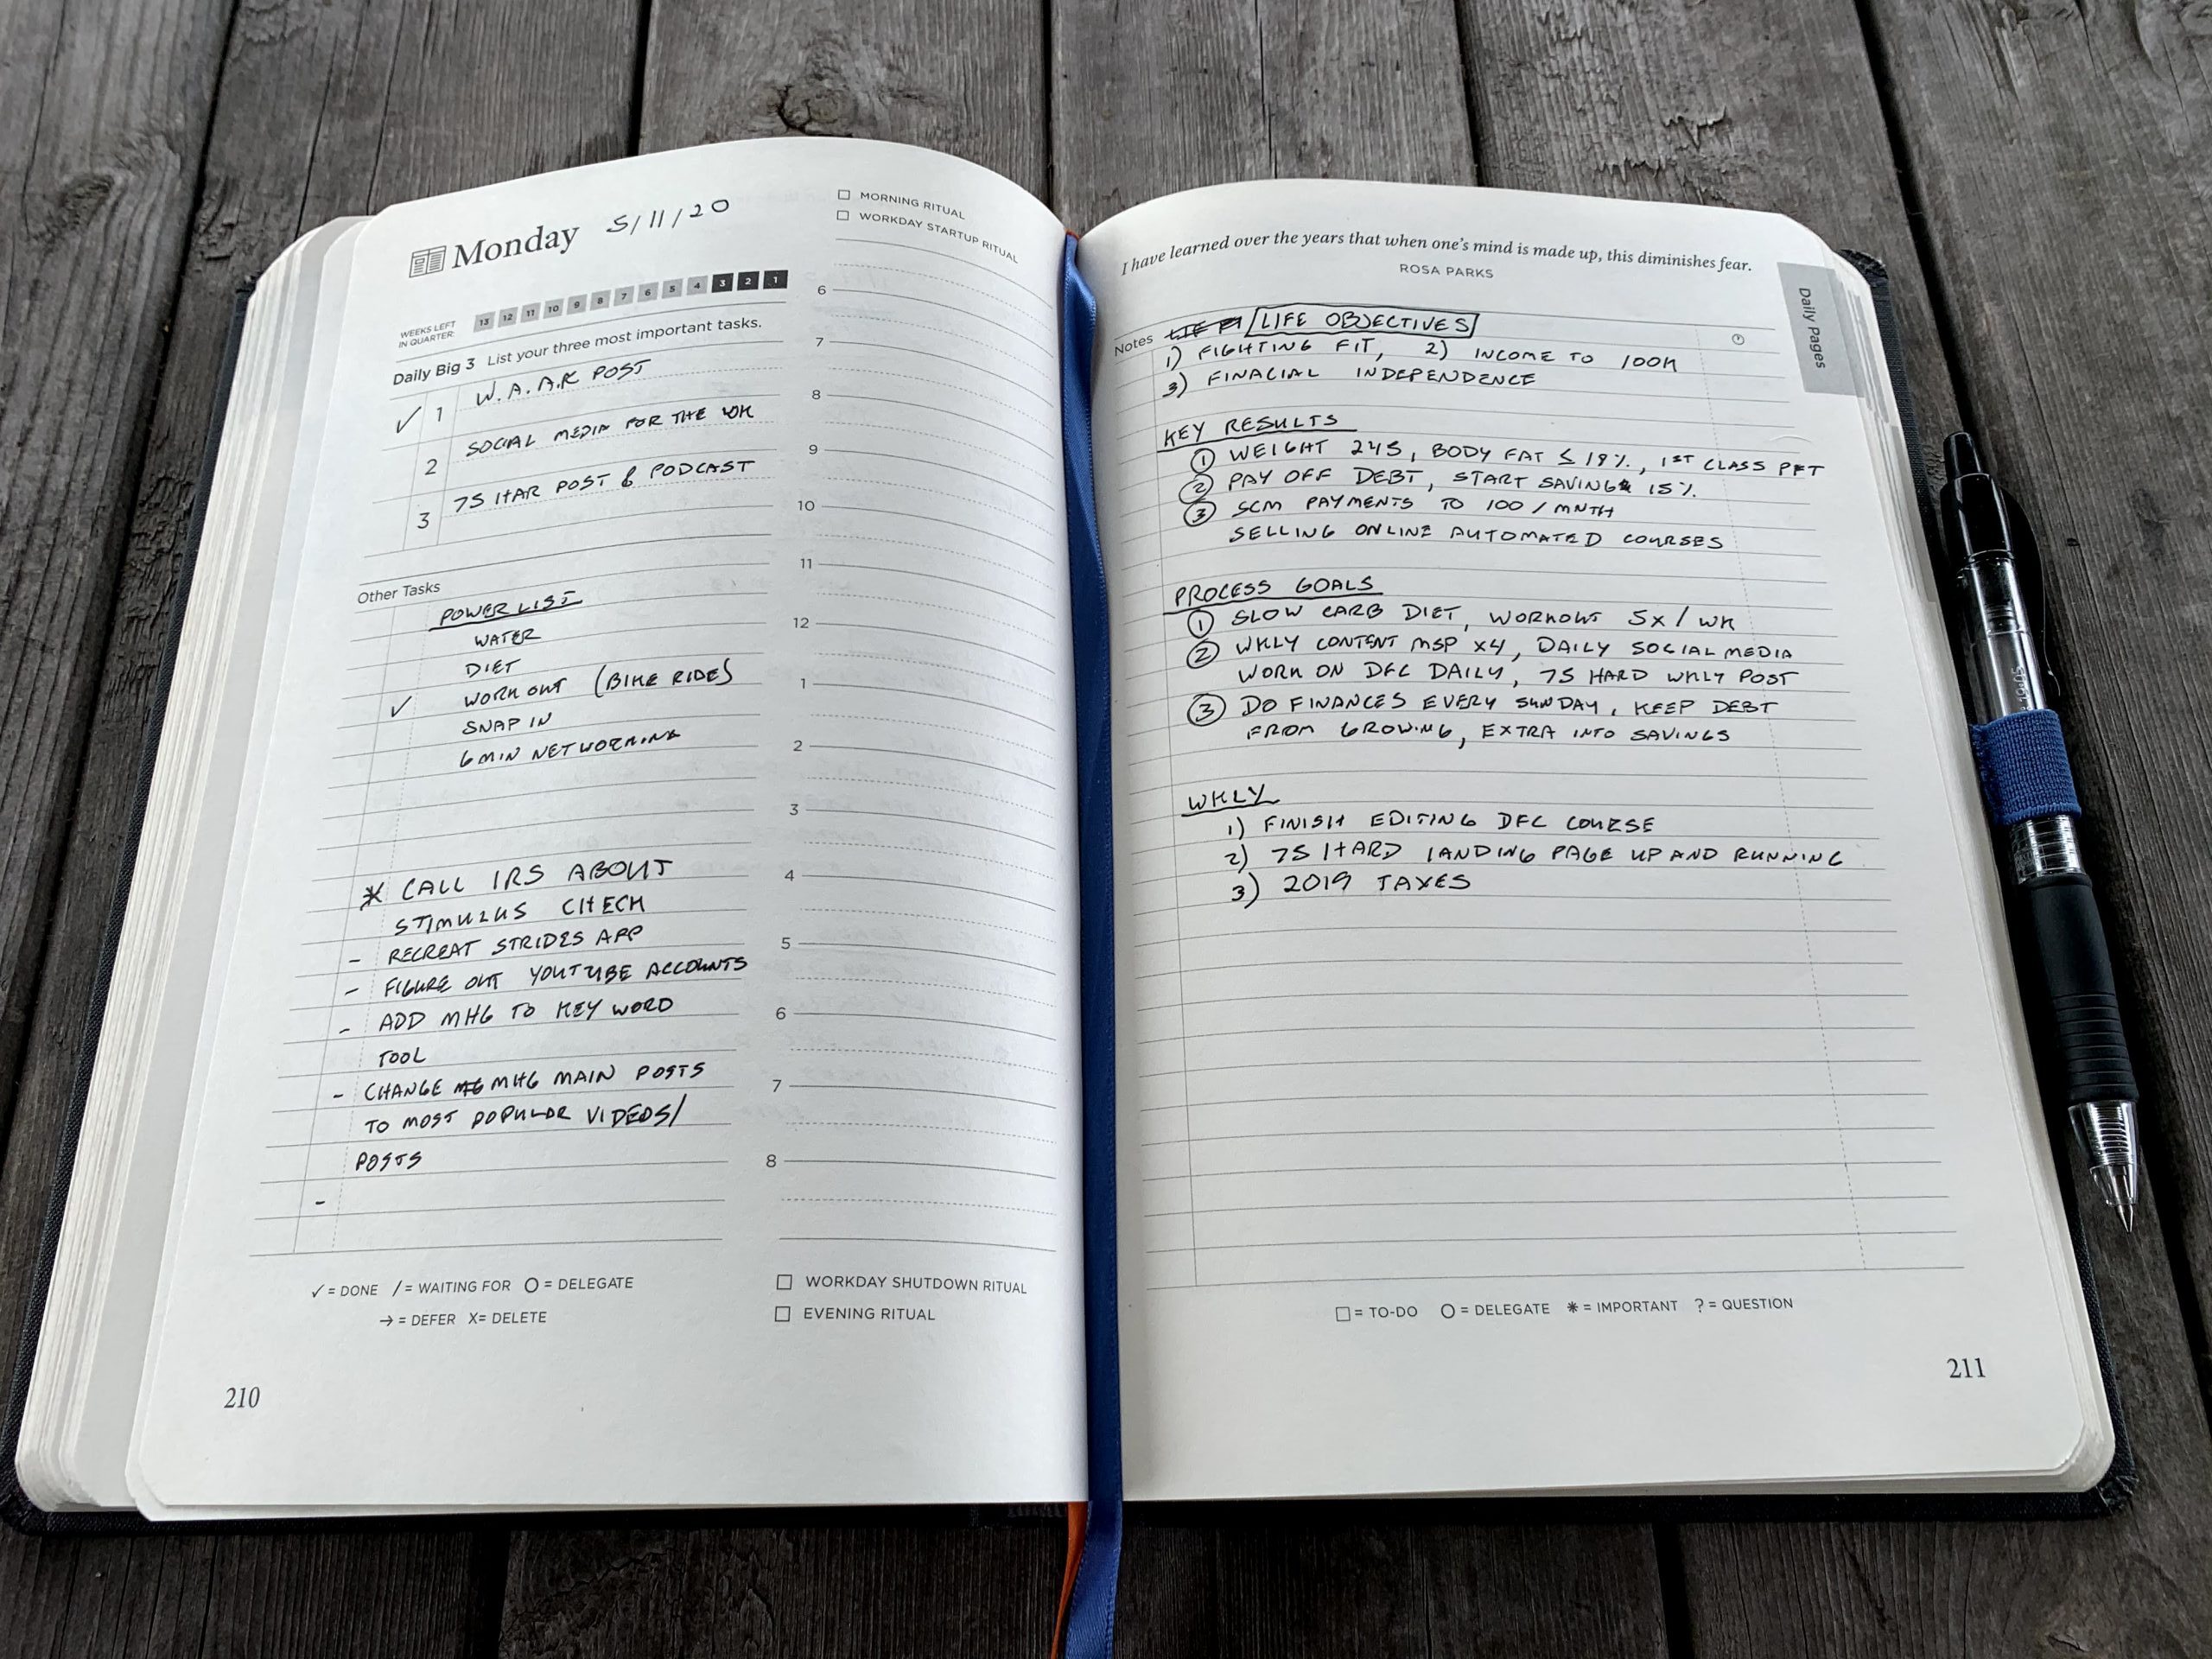 Monday 5/11/20
WEEKS LEFT
IN QUARTER:
13 12 11 10 9 8 7 6 5 4 3 2 1
Daily Big 3 List your three most important tasks.
✓ 1 W.A.A.R POST
2 SOCIAL MEDIA FOR THE WK
3 75 HAR POST & PODCAST
Other Tasks
POWER LIST
WATER
DIET
✓ WORK OUT (BIKE RIDE)
SNAP IN
6 MIN NETWORKING
* CALL IRS ABOUT
STIMULUS CHECK
- RECREAT STRIDES APP
- FIGURE OUT YOUTUBE ACCOUNTS
- ADD MHG TO KEY WORD
TOOL
- CHANGE MHG MAIN POSTS
TO MOST POPULAR VIDEOS/
POSTS
-
✓ = DONE / = WAITING FOR O = DELEGATE
→ = DEFER X= DELETE
210
☐ MORNING RITUAL
☐ WORKDAY STARTUP RITUAL
6
7
8
9
10
11
12
1
2
3
4
5
6
7
8
☐ WORKDAY SHUTDOWN RITUAL
☐ EVENING RITUAL
I have learned over the years that when one's mind is made up, this diminishes fear.
ROSA PARKS
Daily Pages
Notes LIFE OBJECTIVES
1) FIGHTING FIT, 2) INCOME TO 100K
3) FINACIAL INDEPENDENCE
KEY RESULTS
① WEIGHT 245, BODY FAT ≤ 18%, 1ST CLASS PFT
② PAY OFF DEBT, START SAVING 15%
③ SCM PAYMENTS TO 100/MNTH
SELLING ONLINE AUTOMATED COURSES
PROCESS GOALS
① SLOW CARB DIET, WORKOUT 5X/WK
② WKLY CONTENT MSP X4, DAILY SOCIAL MEDIA
WORK ON DFC DAILY, 75 HARD WKLY POST
③ DO FINANCES EVERY SUNDAY, KEEP DEBT
FROM GROWING, EXTRA INTO SAVINGS
WKLY
1) FINISH EDITING DFC COURSE
2) 75 HARD LANDING PAGE UP AND RUNNING
3) 2019 TAXES
☐ = TO-DO O = DELEGATE * = IMPORTANT ? = QUESTION
211